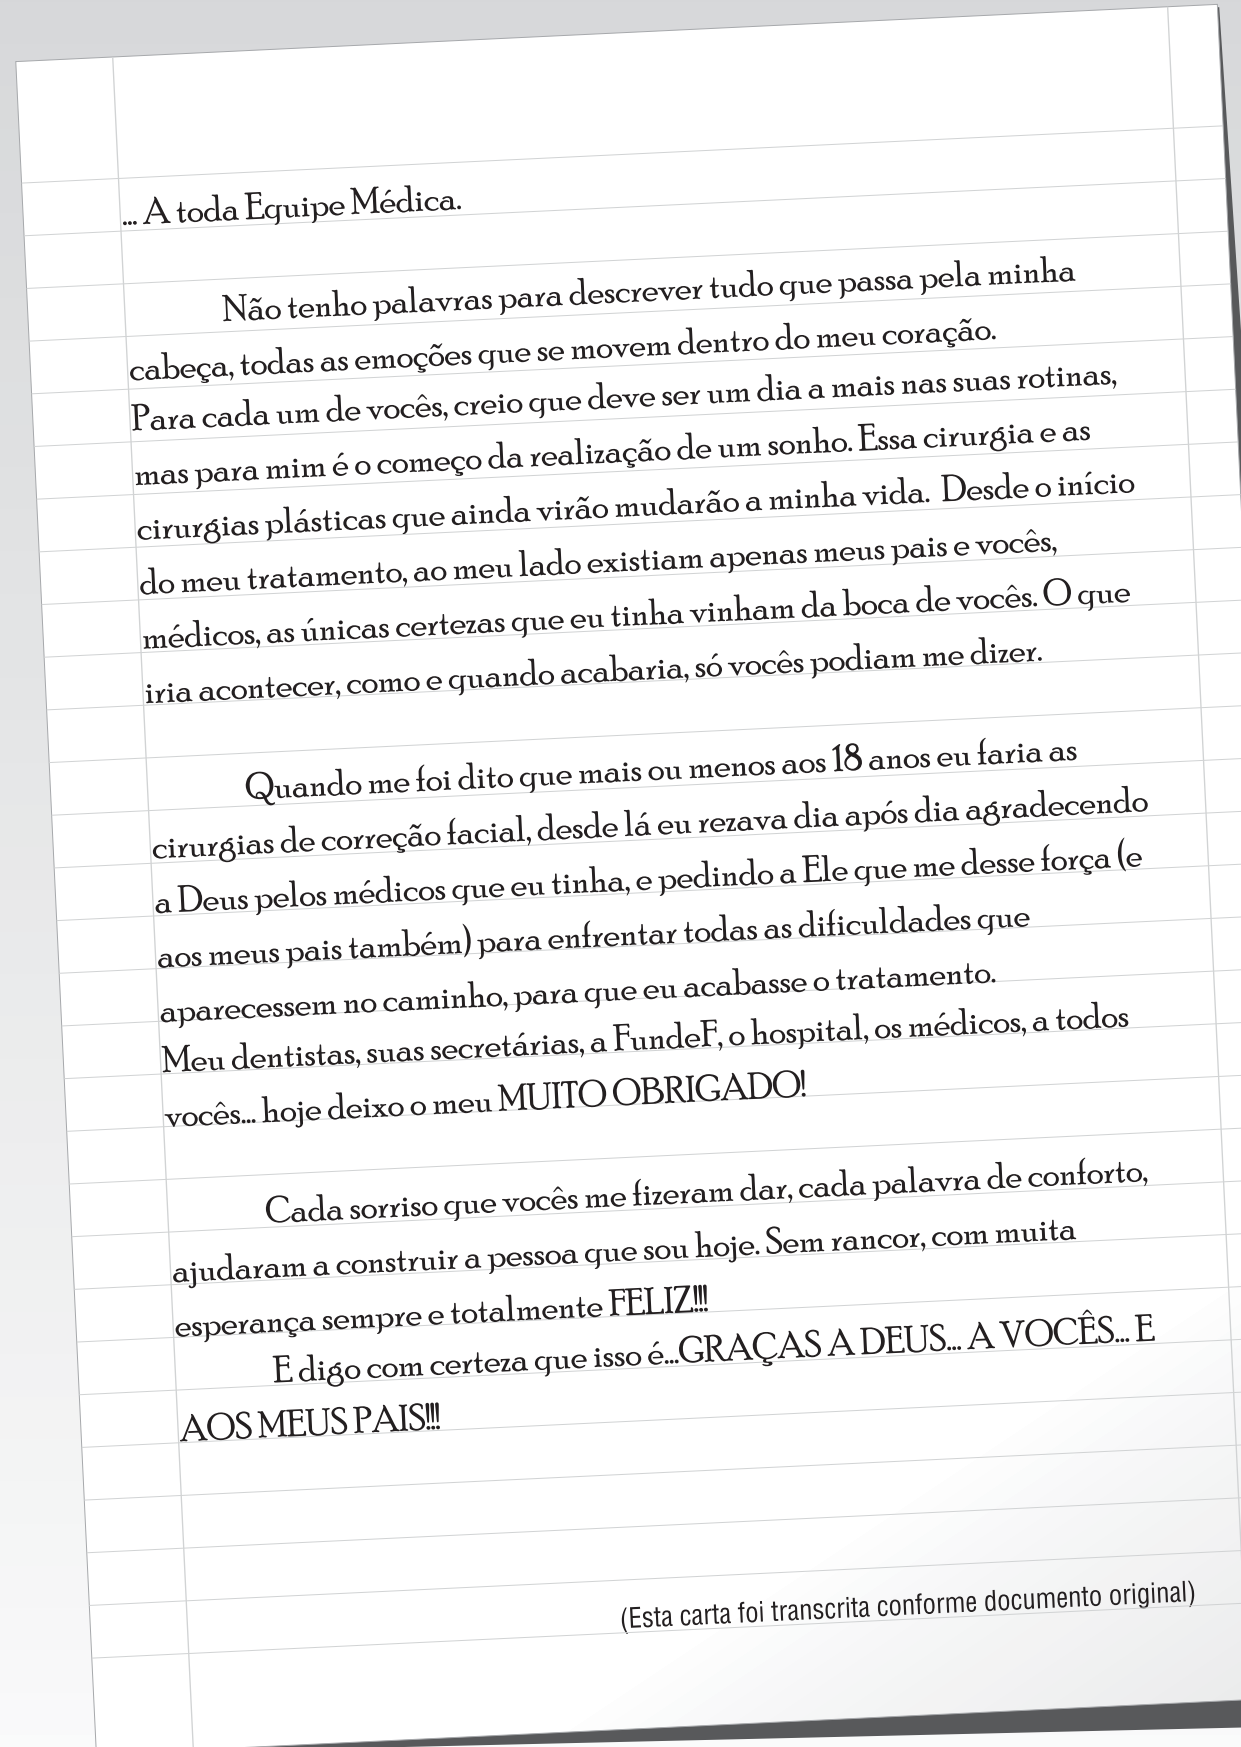 ... A toda Equipe Médica.
Não tenho palavras para descrever tudo que passa pela minha
cabeça, todas as emoções que se movem dentro do meu coração.
Para cada um de vocês, creio que deve ser um dia a mais nas suas rotinas,
mas para mim é o começo da realização de um sonho. Essa cirurgia e as
cirurgias plásticas que ainda virão mudarão a minha vida. Desde o início
do meu tratamento, ao meu lado existiam apenas meus pais e vocês,
médicos, as únicas certezas que eu tinha vinham da boca de vocês. O que
iria acontecer, como e quando acabaria, só vocês podiam me dizer.
Quando me foi dito que mais ou menos aos 18 anos eu faria as
cirurgias de correção facial, desde lá eu rezava dia após dia agradecendo
a Deus pelos médicos que eu tinha, e pedindo a Ele que me desse força (e
aos meus pais também) para enfrentar todas as dificuldades que
aparecessem no caminho, para que eu acabasse o tratamento.
Meu dentistas, suas secretárias, a FundeF, o hospital, os médicos, a todos
vocês... hoje deixo o meu MUITO OBRIGADO!
Cada sorriso que vocês me fizeram dar, cada palavra de conforto,
ajudaram a construir a pessoa que sou hoje. Sem rancor, com muita
esperança sempre e totalmente FELIZ!!!
E digo com certeza que isso é...GRAÇAS A DEUS... A VOCÊS... E
AOS MEUS PAIS!!!
(Esta carta foi transcrita conforme documento original)